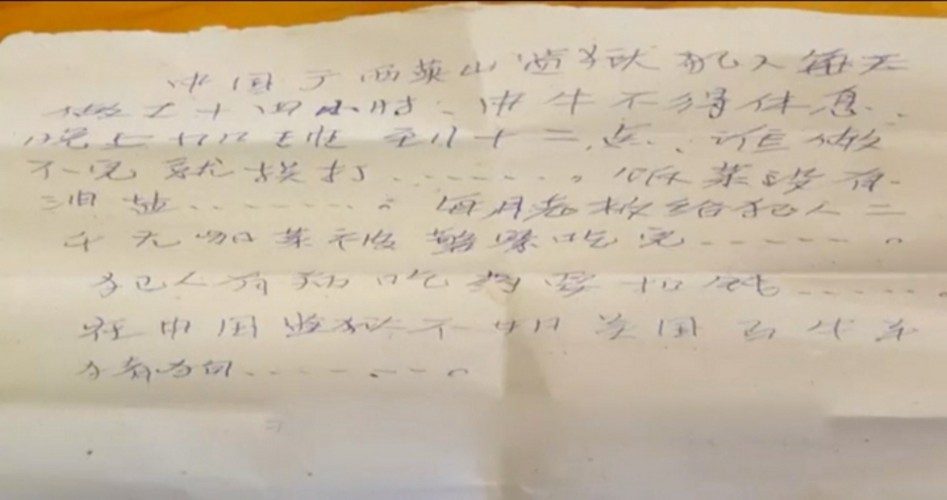 中国广西英山监狱犯人每天
做工十四小时、中午不得休息、
晚上加班 到十二点、谁做
不完就挨打……。 菜没有
油盐……。每月老板给犯人二
千元加菜被警察吃完……。
犯人有病吃药要扣钱……
在中国监狱不 国
……。